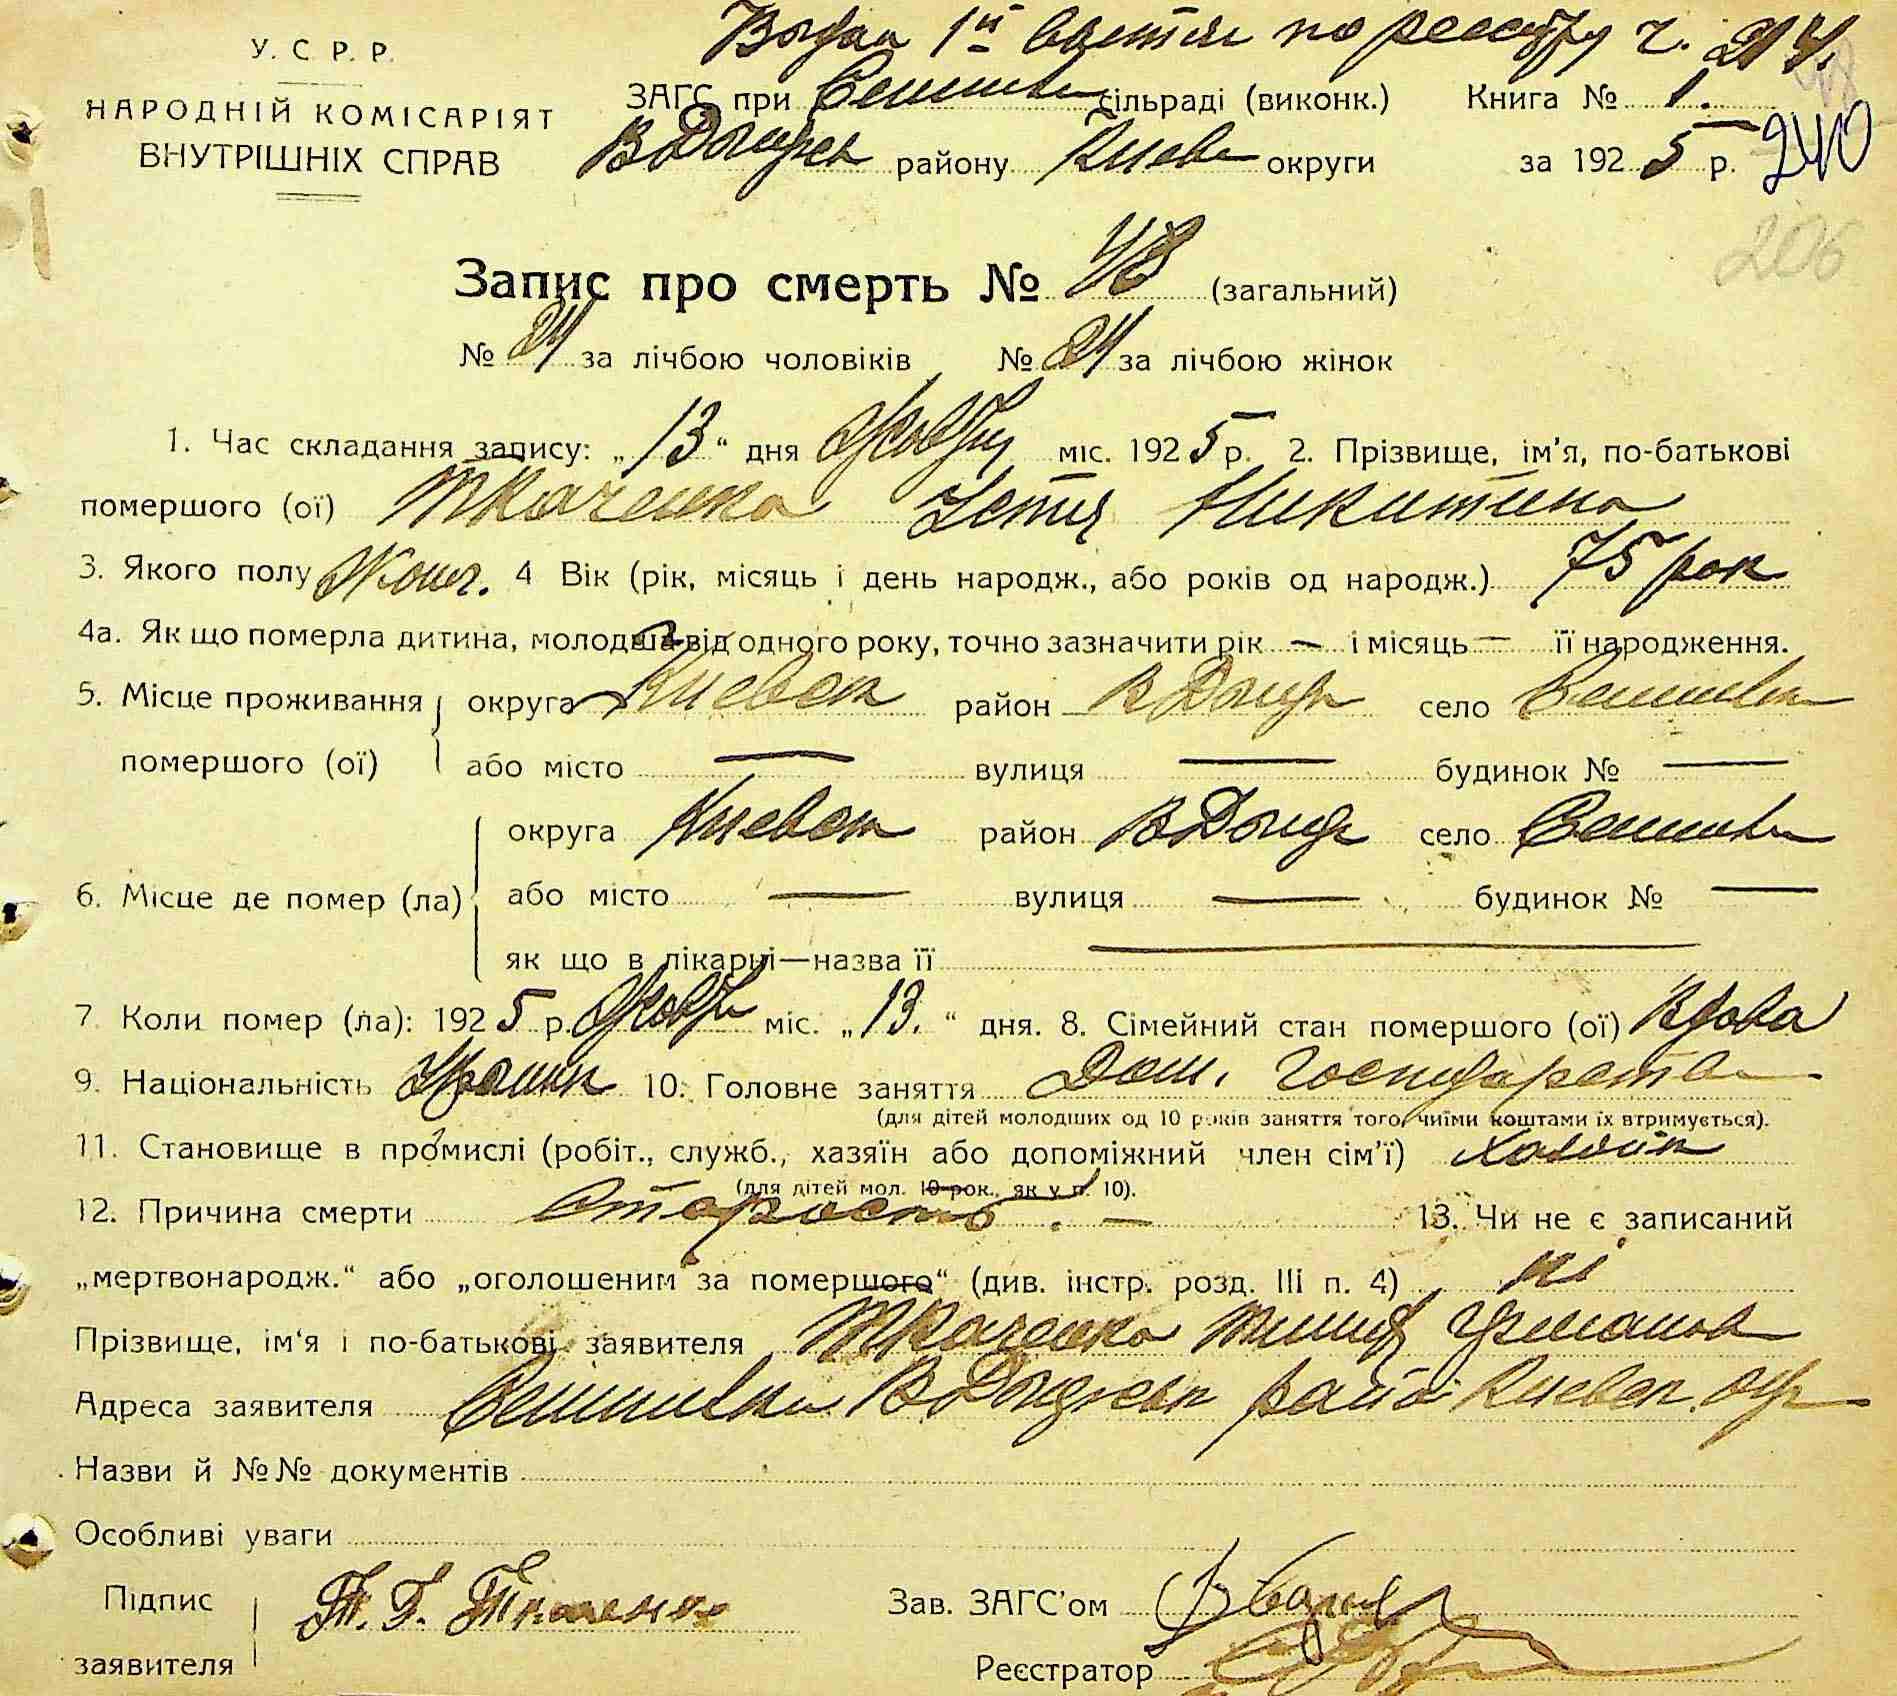 У. С. Р. Р.
НАРОДНІЙ КОМІСАРІЯТ
ВНУТРІШНІХ СПРАВ
по реестру ч. 214.
ЗАГС при сільраді (виконк.) Книга № 1.
району Києв округи за 1925 р. 240
206
Запис про смерть № 48 (загальний)
№ 24 за лічбою чоловіків № 24 за лічбою жінок
1. Час складання запису: „13“ дня міс. 1925 р. 2. Прізвище, ім'я, по-батькові
помершого (ої) Ткаченко Устя Никитина
3. Якого полу 4 Вік (рік, місяць і день народж., або років од народж.) 75 рок
4а. Як що померла дитина, молодша від одного року, точно зазначити рік — і місяць — її народження.
5. Місце проживання округа Киевск район село
помершого (ої) або місто — вулиця — будинок № —
округа Киевск район село
6. Місце де помер (ла) або місто — вулиця — будинок № —
як що в лікарні—назва її —
7. Коли помер (ла): 1925 р. міс. „13.“ дня. 8. Сімейний стан помершого (ої) Вдова
9. Національність 10. Головне заняття Дом. господарство
(для дітей молодших од 10 років заняття того, чиїми коштами їх втримується).
11. Становище в промислі (робіт., служб., хазяїн або допоміжний член сім'ї)
(для дітей мол. 10 рок., як у п. 10).
12. Причина смерти Старость. — 13. Чи не є записаний
„мертвонародж.“ або „оголошеним за помершого“ (див. інстр. розд. III п. 4) ні
Прізвище, ім'я і по-батькові заявителя Ткаченко
Адреса заявителя район Киевск. окр
Назви й №№ документів
Особливі уваги
Підпис Т. Г. Ткаченко Зав. ЗАГС'ом
заявителя Реєстратор